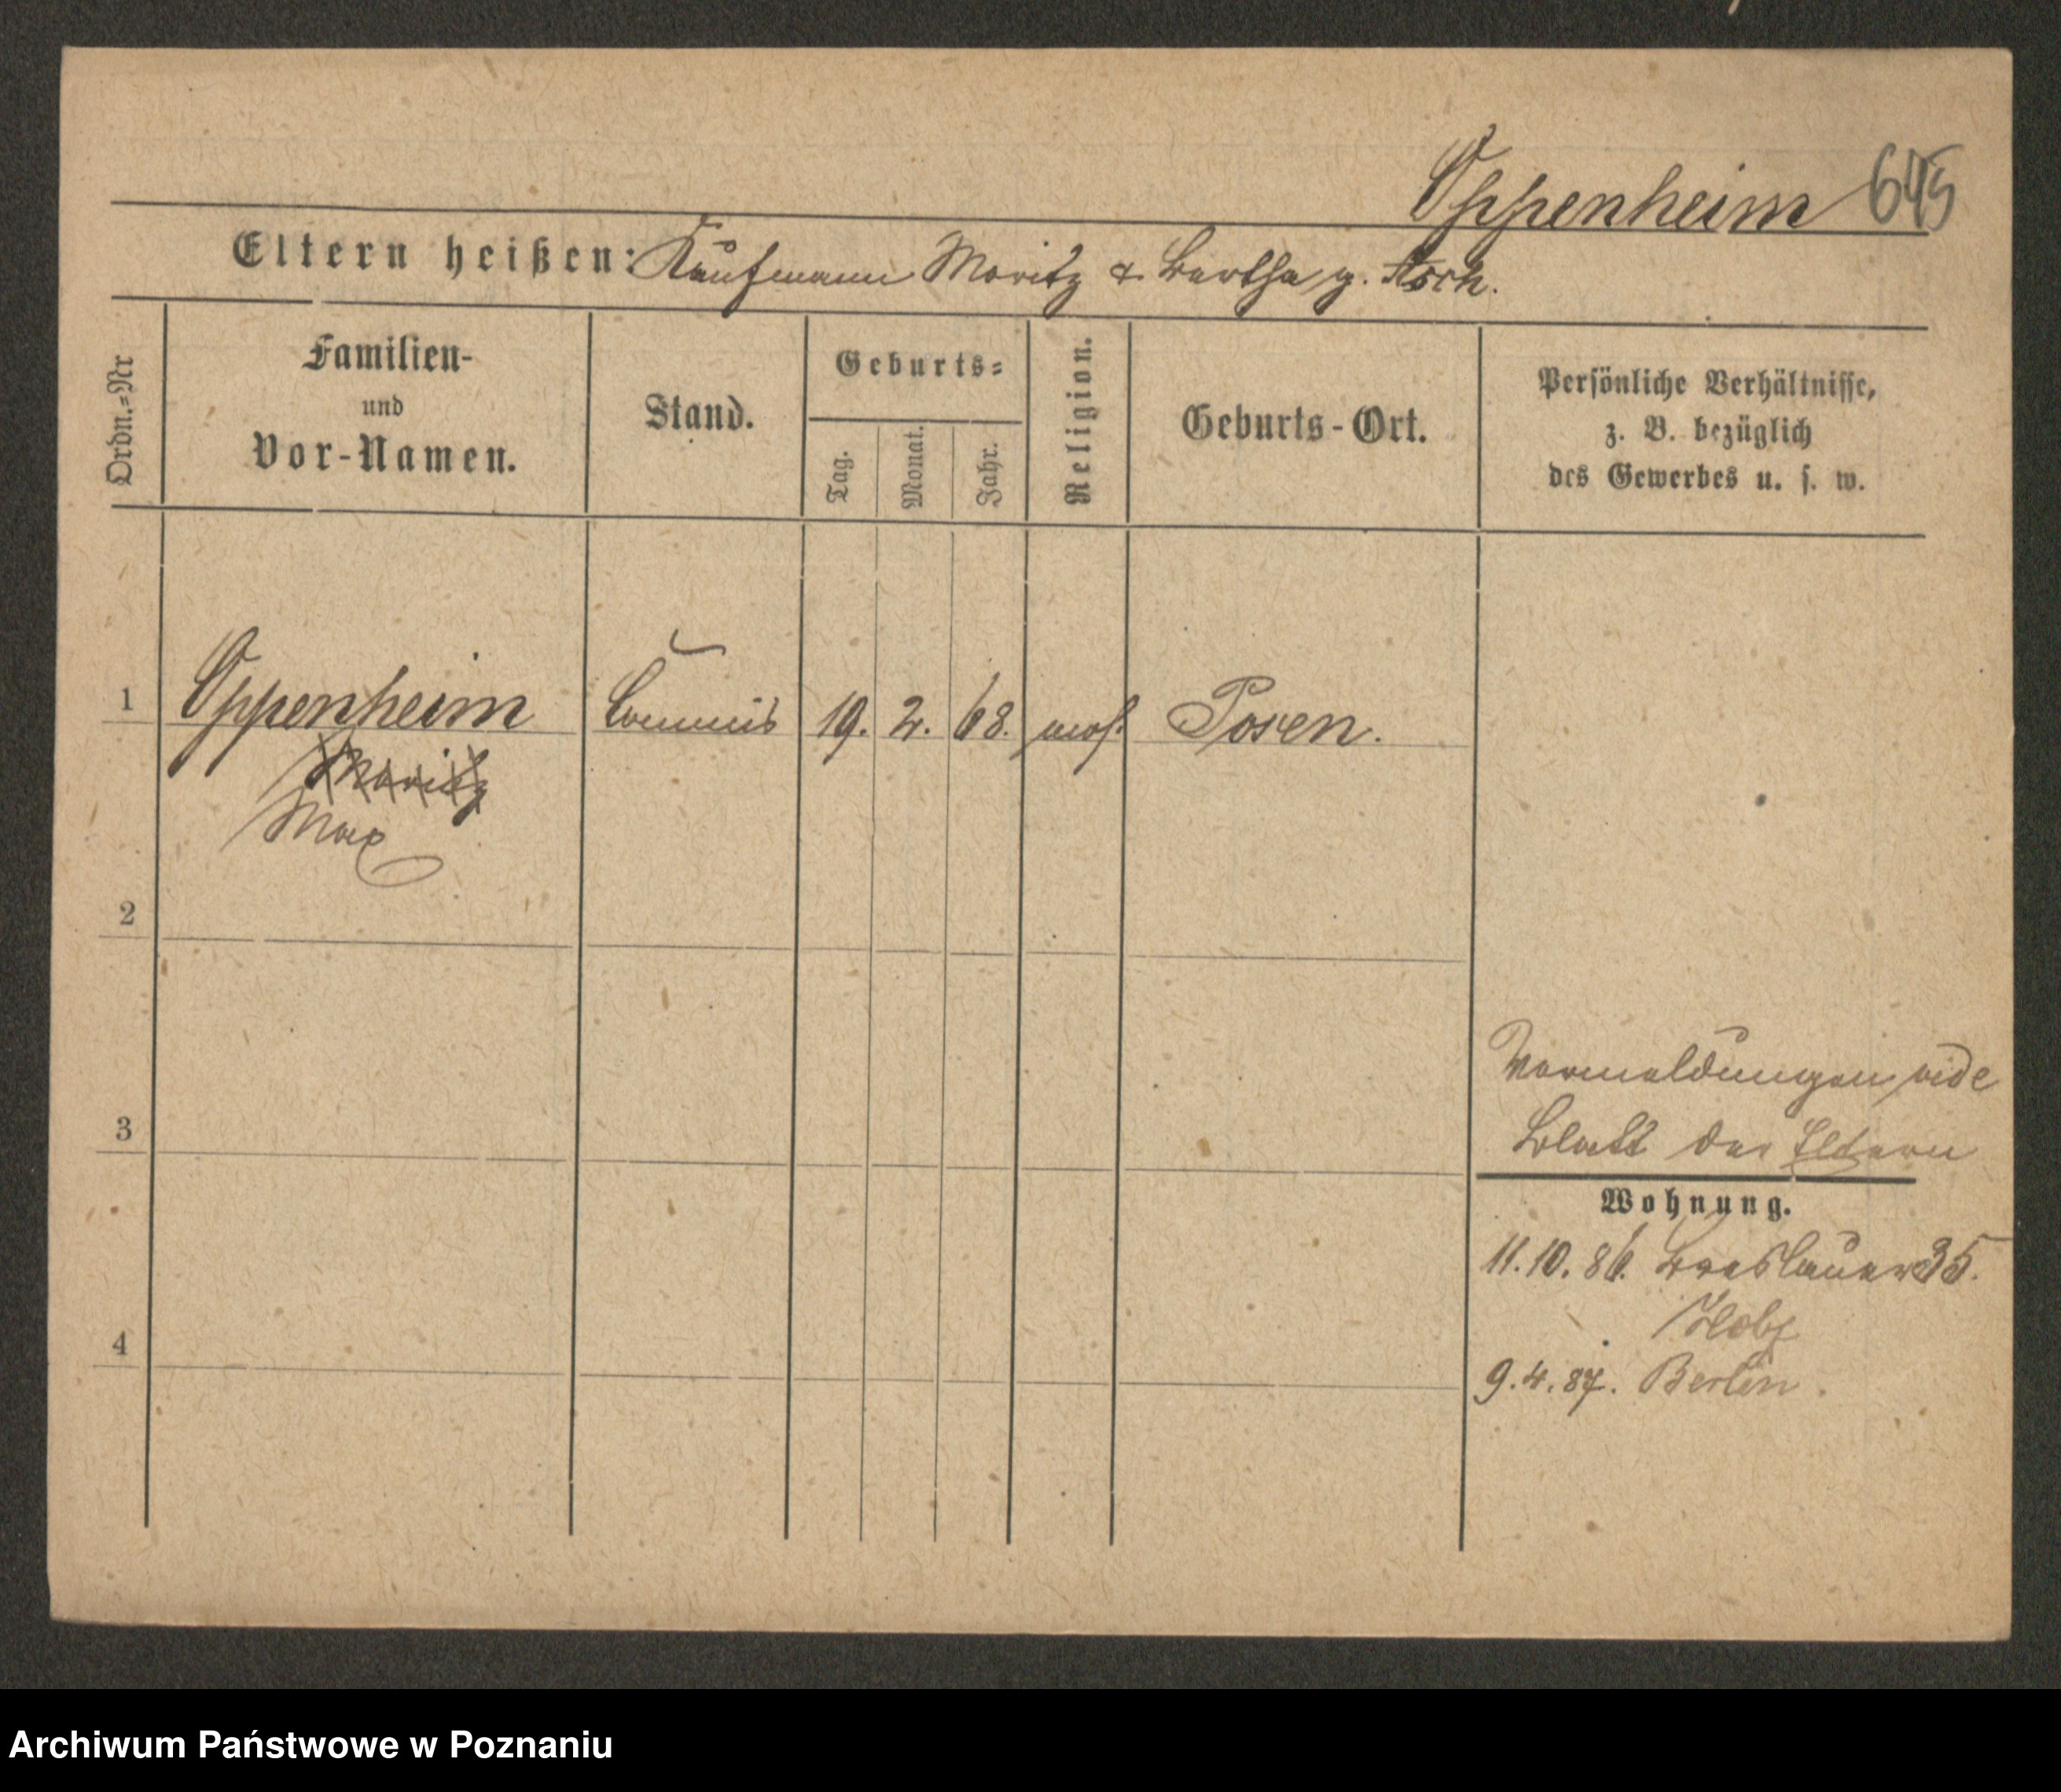 Oppenheim 645
Eltern heißen: Kaufmann Moritz & Bertha g. Asch.
Ordn.-Nr
Familien-
und
Vor-Namen.
Stand.
Geburts-
Tag.
Monat.
Jahr.
Religion.
Geburts-Ort.
Persönliche Verhältnisse,
z. B. bezüglich
des Gewerbes u. s. w.
1 Oppenheim Commis 19. 2. 68. mos. Posen.
Moritz
Max
2
3
4
Vormeldungen vide
Blatt der Eltern
Wohnung.
11.10.86. Breslauer 35.
9.4.87. Berlin.
Archiwum Państwowe w Poznaniu